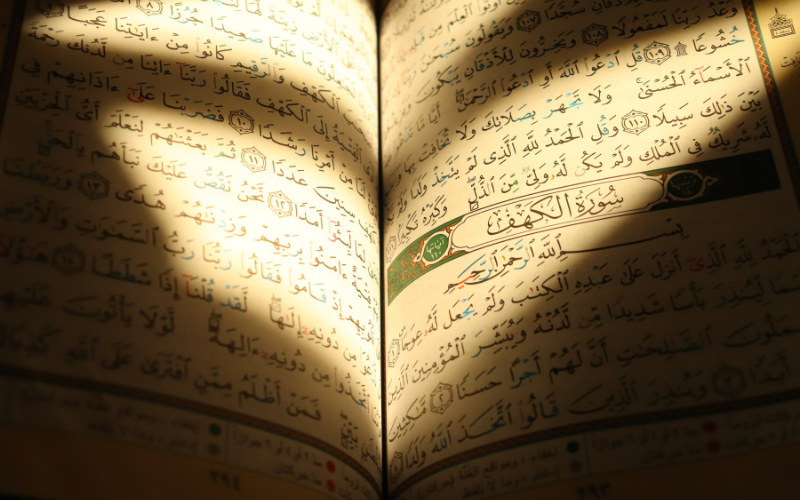 أُوتُوا۟ ٱلْعِلْمَ مِن
لِلْأَذْقَانِ سُجَّدًا ١٠٧ وَيَقُولُونَ سُبْحَٰنَ
وَعْدُ رَبِّنَا لَمَفْعُولًا ١٠٨ وَيَخِرُّونَ لِلْأَذْقَانِ يَبْكُونَ
خُشُوعًا ١٠٩ قُلِ ٱدْعُوا۟ ٱللَّهَ أَوِ ٱدْعُوا۟ ٱلرَّحْمَٰنَ أَيًّا مَّا
ٱلْأَسْمَآءُ ٱلْحُسْنَىٰ وَلَا تَجْهَرْ بِصَلَاتِكَ وَلَا تُخَافِتْ بِهَا
بَيْنَ ذَٰلِكَ سَبِيلًا ١١٠ وَقُلِ ٱلْحَمْدُ لِلَّهِ ٱلَّذِى لَمْ يَتَّخِذْ وَلَدًا وَلَمْ
لَّهُۥ شَرِيكٌ فِى ٱلْمُلْكِ وَلَمْ يَكُن لَّهُۥ وَلِىٌّ مِّنَ ٱلذُّلِّ وَكَبِّرْهُ تَكْبِيرًا
سُورَةُ ٱلْكَهْفِ
بِسْمِ ٱللَّهِ ٱلرَّحْمَٰنِ ٱلرَّحِيمِ
ٱلْحَمْدُ لِلَّهِ ٱلَّذِىٓ أَنزَلَ عَلَىٰ عَبْدِهِ ٱلْكِتَٰبَ وَلَمْ يَجْعَل لَّهُۥ عِوَجَا ١
لِّيُنذِرَ بَأْسًا شَدِيدًا مِّن لَّدُنْهُ وَيُبَشِّرَ ٱلْمُؤْمِنِينَ ٱلَّذِينَ
يَعْمَلُونَ ٱلصَّٰلِحَٰتِ أَنَّ لَهُمْ أَجْرًا حَسَنًا ٢ مَّٰكِثِينَ
أَبَدًا ٣ وَيُنذِرَ ٱلَّذِينَ قَالُوا۟ ٱتَّخَذَ ٱللَّهُ وَلَدًا
٢٩٣
مَا عَلَيْهَا صَعِيدًا جُرُزًا ٨
ٱلْكَهْفِ وَٱلرَّقِيمِ كَانُوا۟ مِنْ ءَايَٰتِنَا عَجَبًا ٩
ٱلْفِتْيَةُ إِلَى ٱلْكَهْفِ فَقَالُوا۟ رَبَّنَآ ءَاتِنَا مِن لَّدُنكَ رَحْمَةً
لَنَا مِنْ أَمْرِنَا رَشَدًا ١٠ فَضَرَبْنَا عَلَىٰٓ ءَاذَانِهِمْ فِى
ٱلْكَهْفِ سِنِينَ عَدَدًا ١١ ثُمَّ بَعَثْنَٰهُمْ لِنَعْلَمَ أَىُّ ٱلْحِزْبَيْنِ
لِمَا لَبِثُوٓا۟ أَمَدًا ١٢ نَّحْنُ نَقُصُّ عَلَيْكَ نَبَأَهُم بِٱلْحَقِّ
فِتْيَةٌ ءَامَنُوا۟ بِرَبِّهِمْ وَزِدْنَٰهُمْ هُدًى ١٣ وَرَبَطْنَا
قُلُوبِهِمْ إِذْ قَامُوا۟ فَقَالُوا۟ رَبُّنَا رَبُّ ٱلسَّمَٰوَٰتِ وَٱلْأَرْضِ
نَّدْعُوَا۟ مِن دُونِهِۦٓ إِلَٰهًا لَّقَدْ قُلْنَآ إِذًا شَطَطًا ١٤ هَٰٓؤُلَآءِ
ٱتَّخَذُوا۟ مِن دُونِهِۦٓ ءَالِهَةً لَّوْلَا يَأْتُونَ عَلَيْهِم
بَيِّنٍ فَمَنْ أَظْلَمُ مِمَّنِ ٱفْتَرَىٰ عَلَى ٱللَّهِ كَذِبًا
٢٩٤